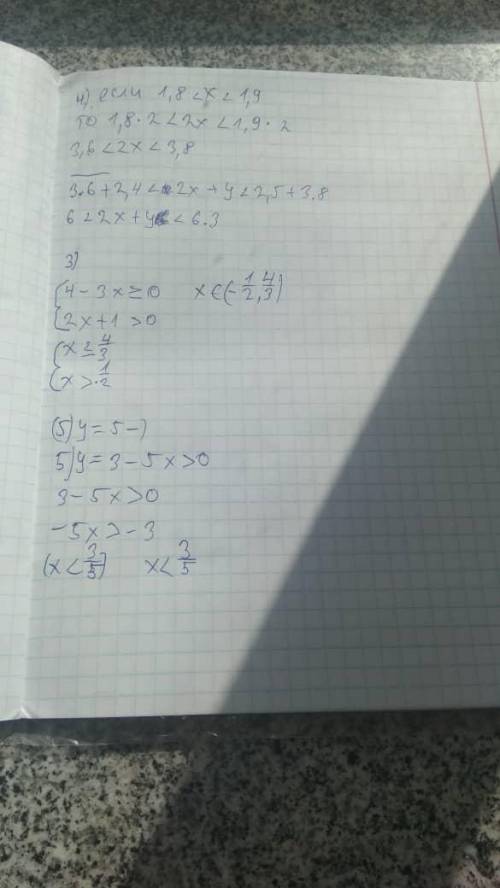 4) если 1,8 < x < 1,9
то 1,8 · 2 < 2x < 1,9 · 2
3,6 < 2x < 3,8
3.6 + 2,4 < 2x + y < 2,5 + 3.8
6 < 2x + y < 6.3
3)
{4 - 3x ≥ 0 x ∈ (-1/2, 4/3)
{2x + 1 > 0
{x ≥ 4/3
{x > -1/2
(5) y = 5 -)
5) y = 3 - 5x > 0
3 - 5x > 0
-5x > -3
(x < 3/5) x < 3/5